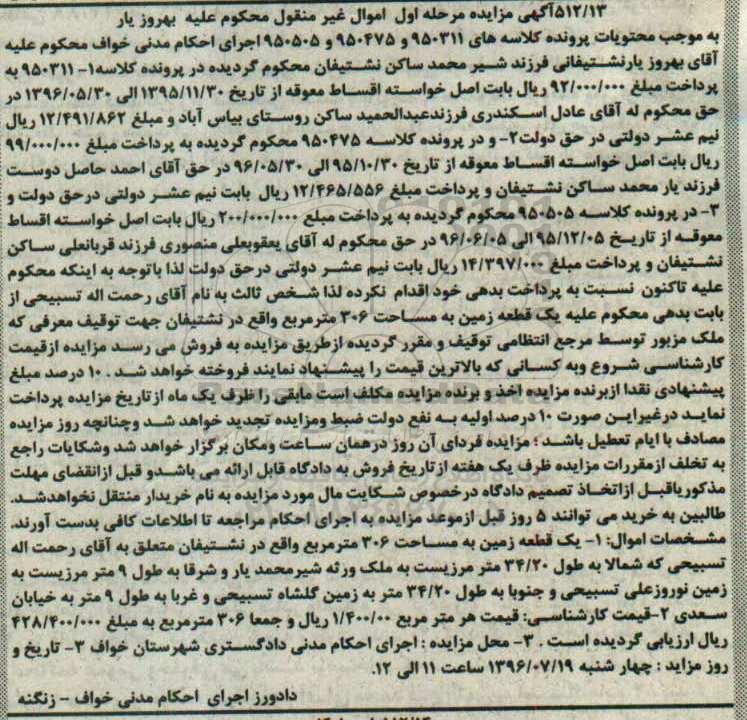 ۵۱۲/۱۳آگهی مزایده مرحله اول اموال غیر منقول محکوم علیه بهروز یار
به موجب محتویات پرونده کلاسه های ۹۵۰۳۱۱ و ۹۵۰۴۷۵ و ۹۵۰۵۰۵ اجرای احکام مدنی خواف محکوم علیه
آقای بهروز یارنشتیفانی فرزند شیر محمد ساکن نشتیفان محکوم گردیده در پرونده کلاسه۱- ۹۵۰۳۱۱ به
پرداخت مبلغ ۹۲/۰۰۰/۰۰۰ ریال بابت اصل خواسته اقساط معوقه از تاریخ ۱۳۹۵/۱۱/۳۰ الی ۱۳۹۶/۰۵/۳۰ در
حق محکوم له آقای عادل اسکندری فرزندعبدالحمید ساکن روستای بیاس آباد و مبلغ ۱۲/۴۹۱/۸۶۲ ریال
نیم عشر دولتی در حق دولت۲- و در پرونده کلاسه ۹۵۰۴۷۵ محکوم گردیده به پرداخت مبلغ ۹۹/۰۰۰/۰۰۰
ریال بابت اصل خواسته اقساط معوقه از تاریخ ۹۵/۱۰/۳۰ الی ۹۶/۰۵/۳۰ در حق آقای احمد حاصل دوست
فرزند یار محمد ساکن نشتیفان و پرداخت مبلغ ۱۲/۴۶۵/۵۵۶ ریال بابت نیم عشر دولتی درحق دولت و
۳- در پرونده کلاسه ۹۵۰۵۰۵ محکوم گردیده به پرداخت مبلغ ۲۰۰/۰۰۰/۰۰۰ ریال بابت اصل خواسته اقساط
معوقه از تاریخ ۹۵/۱۲/۰۵ الی ۹۶/۰۶/۰۵ در حق محکوم له آقای یعقوبعلی منصوری فرزند قربانعلی ساکن
نشتیفان و پرداخت مبلغ ۱۴/۳۹۷/۰۰۰ ریال بابت نیم عشر دولتی درحق دولت لذا باتوجه به اینکه محکوم
علیه تاکنون نسبت به پرداخت بدهی خود اقدام نکرده لذا شخص ثالث به نام آقای رحمت اله تسبیحی از
بابت بدهی محکوم علیه یک قطعه زمین به مساحت ۳۰۶ مترمربع واقع در نشتیفان جهت توقیف معرفی که
ملک مزبور توسط مرجع انتظامی توقیف و مقرر گردیده ازطریق مزایده به فروش می رسد مزایده ازقیمت
کارشناسی شروع وبه کسانی که بالاترین قیمت را پیشنهاد نمایند فروخته خواهد شد . ۱۰ درصد مبلغ
پیشنهادی نقدا ازبرنده مزایده اخذ و برنده مزایده مکلف است مابقی را ظرف یک ماه ازتاریخ مزایده پرداخت
نماید درغیراین صورت ۱۰ درصد اولیه به نفع دولت ضبط ومزایده تجدید خواهد شد وچنانچه روز مزایده
مصادف با ایام تعطیل باشد ؛ مزایده فردای آن روز درهمان ساعت ومکان برگزار خواهد شد وشکایات راجع
به تخلف ازمقررات مزایده ظرف یک هفته ازتاریخ فروش به دادگاه قابل ارائه می باشدو قبل ازانقضای مهلت
مذکوریاقبل ازاتخاذ تصمیم دادگاه درخصوص شکایت مال مورد مزایده به نام خریدار منتقل نخواهدشد.
طالبین به خرید می توانند ۵ روز قبل ازموعد مزایده به اجرای احکام مراجعه تا اطلاعات کافی بدست آورند.
مشخصات اموال: ۱- یک قطعه زمین به مساحت ۳۰۶ مترمربع واقع در نشتیفان متعلق به آقای رحمت اله
تسبیحی که شمالا به طول ۳۴/۲۰ متر مرزیست به ملک ورثه شیرمحمد یار و شرقا به طول ۹ متر مرزیست به
زمین نوروزعلی تسبیحی و جنوبا به طول ۳۴/۲۰ متر به زمین گلشاه تسبیحی و غربا به طول ۹ متر به خیابان
سعدی ۲-قیمت کارشناسی: قیمت هر متر مربع ۱/۴۰۰/۰۰ ریال و جمعا ۳۰۶ مترمربع به مبلغ ۴۲۸/۴۰۰/۰۰۰
ریال ارزیابی گردیده است . ۳- محل مزایده : اجرای احکام مدنی دادگستری شهرستان خواف ۳- تاریخ و
روز مزاید : چهار شنبه ۱۳۹۶/۰۷/۱۹ ساعت ۱۱ الی ۱۲.
دادورز اجرای احکام مدنی خواف - زنگنه